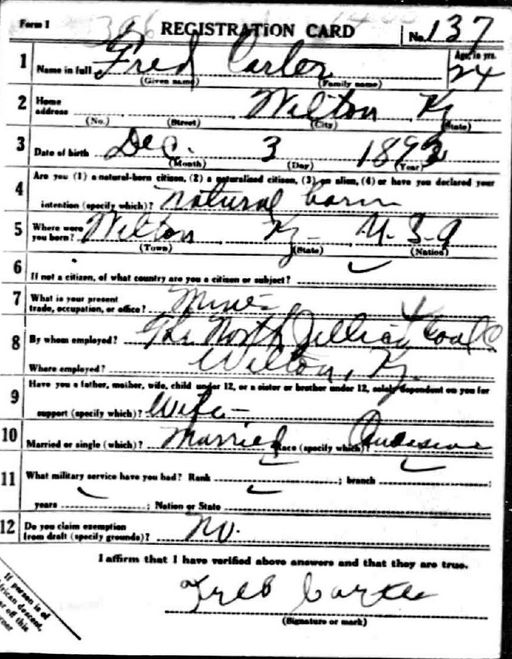 Form 1 REGISTRATION CARD No. 137
1 Name in full Fred Carter Age, in yrs. 24
(Given name) (Family name)
2 Home address Wilton Ky
(No.) (Street) (City) (State)
3 Date of birth Dec. 3 1892
(Month) (Day) (Year)
4 Are you (1) a natural-born citizen, (2) a naturalized citizen, (3) an alien, (4) or have you declared your
intention (specify which)? natural born
5 Where were you born? Wilton Ky U.S.A
(Town) (State) (Nation)
6 If not a citizen, of what country are you a citizen or subject?
7 What is your present trade, occupation, or office? Mine
8 By whom employed? The North Jellico Coal Co
Where employed? Wilton, Ky.
9 Have you a father, mother, wife, child under 12, or a sister or brother under 12, solely dependent on you for
support (specify which)? Wife
10 Married or single (which)? Married Race (specify which)?
11 What military service have you had? Rank ; branch ;
years ; Nation or State
12 Do you claim exemption from draft (specify grounds)? No.
I affirm that I have verified above answers and that they are true.
Fred Carter
(Signature or mark)
If person is of
African descent,
off this
corner